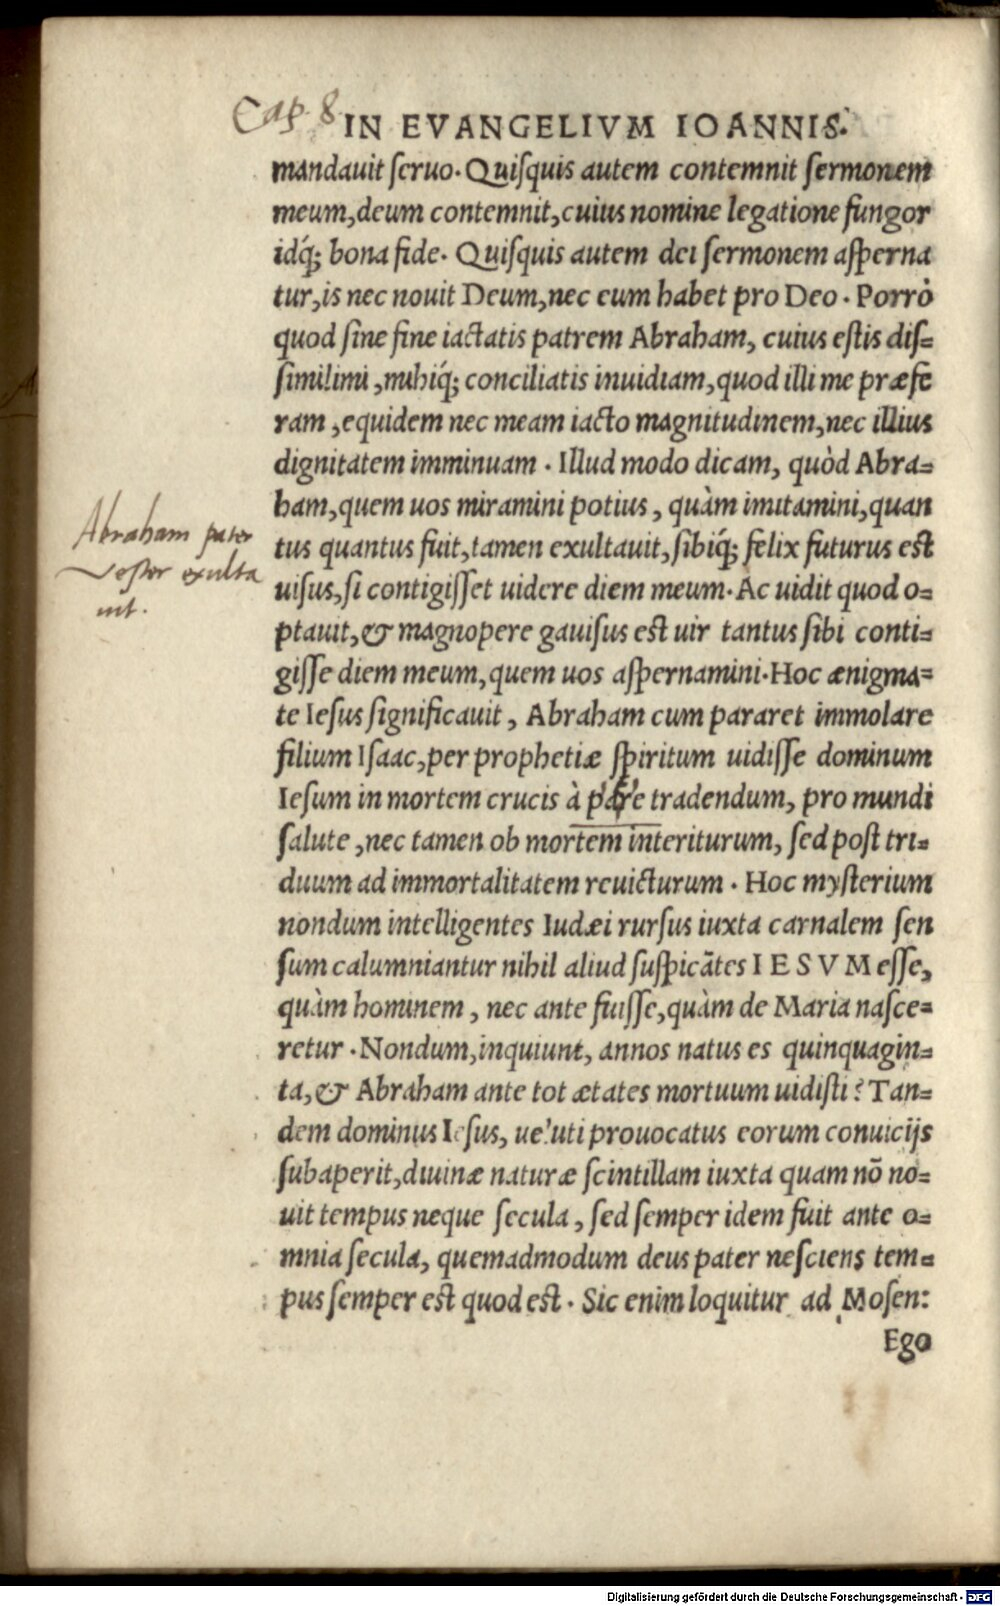 Cap 8
IN EVANGELIVM IOANNIS.
mandauit ſeruo. Quiſquis autem contemnit ſermonem
meum, deum contemnit, cuius nomine legatione fungor
idq́; bona fide. Quiſquis autem dei ſermonem aſperna
tur, is nec nouit Deum, nec eum habet pro Deo. Porrò
quod ſine fine iactatis patrem Abraham, cuius eſtis diſ=
ſimilimi, mihiq́; conciliatis inuidiam, quod illi me præfe
ram, equidem nec meam iacto magnitudinem, nec illius
dignitatem imminuam. Illud modo dicam, quòd Abra=
ham, quem uos miramini potius, quàm imitamini, quan
tus quantus fuit, tamen exultauit, ſibiq́; felix futurus eſt
uiſus, ſi contigiſſet uidere diem meum. Ac uidit quod o=
ptauit, & magnopere gauiſus eſt uir tantus ſibi conti=
giſſe diem meum, quem uos aſpernamini. Hoc ænigma=
te Ieſus ſignificauit, Abraham cum pararet immolare
filium Iſaac, per prophetiæ ſpiritum uidiſſe dominum
Ieſum in mortem crucis à patre tradendum, pro mundi
ſalute, nec tamen ob mortem interiturum, ſed poſt tri=
duum ad immortalitatem reuicturum. Hoc myſterium
nondum intelligentes Iudæi rurſus iuxta carnalem ſen
ſum calumniantur nihil aliud ſuſpicātes IESVM eſſe,
quàm hominem, nec ante fuiſſe, quàm de Maria naſce=
retur. Nondum, inquiunt, annos natus es quinquagin=
ta, & Abraham ante tot ætates mortuum uidiſti? Tan=
dem dominus Ieſus, ueluti prouocatus eorum conuicijs
ſubaperit, diuinæ naturæ ſcintillam iuxta quam nō no=
uit tempus neque ſecula, ſed ſemper idem fuit ante o=
mnia ſecula, quemadmodum deus pater neſciens tem=
pus ſemper eſt quod eſt. Sic enim loquitur ad Moſen:
Ego
Abraham pater
veſter exulta
uit.
Digitalisierung gefördert durch die Deutsche Forschungsgemeinschaft - DFG